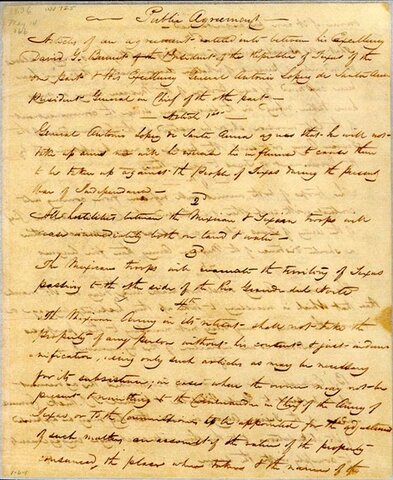 1836
May 14
No 125
Public Agreement
Articles of an agreement entered into between his Excellency
David G. Burnet of the President of the Republic of Texas of the
one part & His Excellency General Antonio Lopez de Santa Anna
President General in Chief of the other part —
Article 1st
General Antonio Lopez de Santa Anna agrees that he will not
take up arms nor will he to be influence to cause them
to be taken up against the People of Texas during the present
War of Independence —
2
All hostilities between the Mexican & Texian troops will
cease immediately both on land & water —
3
The Mexican troops will evacuate the territory of Texas
passing to the other side of the Rio Grande del Norte
4th
The Mexican Army in its retreat shall not take the
property of any person without his consent & just indem-
nification, using only such articles as may be necessary
for its subsistence, in cases where the owner may not be
present & remitting to the Commander in Chief of the Army of
Texas or to the Commissioner to be appointed for the adjustment
of such matters an account of the value of the property
consumed, the place where taken, & the name of the